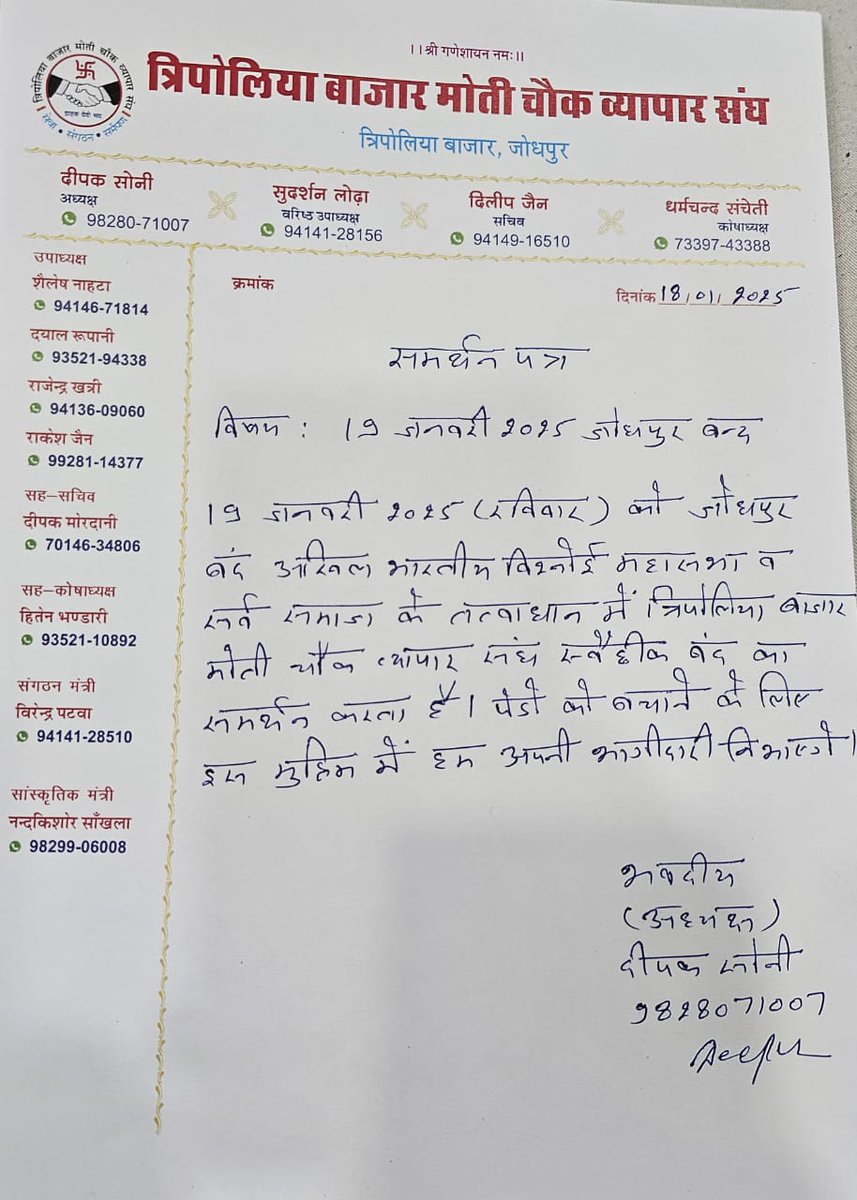 ।। श्री गणेशायन नमः।।
त्रिपोलिया बाजार मोती चौक व्यापार संघ
त्रिपोलिया बाजार मोती चौक व्यापार संघ
ग्राहक देवो भवः
सेवा • संगठन • समर्पण
त्रिपोलिया बाजार, जोधपुर
दीपक सोनी
अध्यक्ष
98280-71007
सुदर्शन लोढ़ा
वरिष्ठ उपाध्यक्ष
94141-28156
दिलीप जैन
सचिव
94149-16510
धर्मचन्द संचेती
कोषाध्यक्ष
73397-43388
उपाध्यक्ष
शैलेष नाहटा
94146-71814
दयाल रूपानी
93521-94338
राजेन्द्र खत्री
94136-09060
राकेश जैन
99281-14377
सह-सचिव
दीपक मोरदानी
70146-34806
सह-कोषाध्यक्ष
हितेन भण्डारी
93521-10892
संगठन मंत्री
विरेन्द्र पटवा
94141-28510
सांस्कृतिक मंत्री
नन्दकिशोर साँखला
98299-06008
क्रमांक
दिनांक 18/01/2025
समर्थन पत्र
विषय : 19 जनवरी 2025 जोधपुर बन्द
19 जनवरी 2025 (रविवार) को जोधपुर
बंद अखिल भारतीय विश्नोई महासभा व
सर्व समाज के तत्वाधान में त्रिपोलिया बाजार
मोती चौक व्यापार संघ स्वैछीक बंद का
समर्थन करता है। पेडो को बचाने के लिए
इस मुहिम में हम अपनी भागीदारी निभाएगे।
भवदीय
(अध्यक्ष)
दीपक सोनी
9828071007